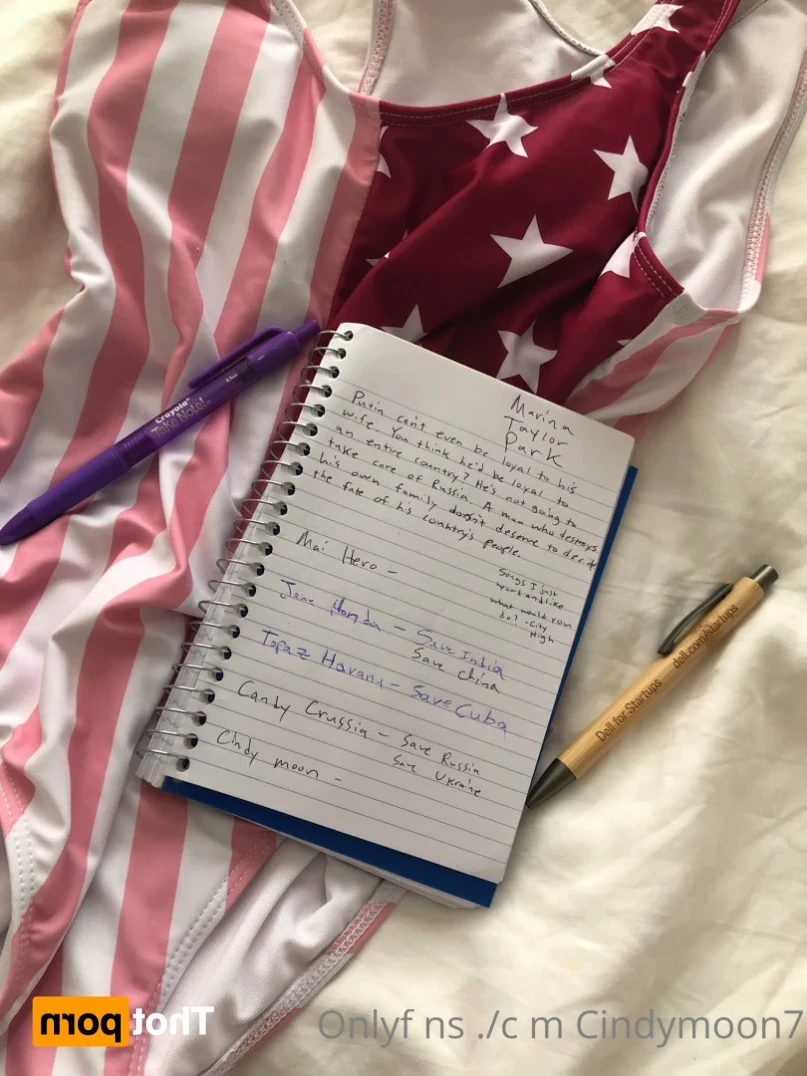 Crayola
Take Note!
Marina
Taylor
Park
Putin can't even be loyal to his
wife. You think he'd be loyal to
an entire country? He's not going to
take care of Russia. A man who destroys
his own family doesn't deserve to decide
the fate of his country's people.
Mai Hero -
Songs I just
heard and like
what would you
do? - City
High
Jane Honda - Save India
Save China
Topaz Havana - Save Cuba
Candy Crussia - Save Russia
Save Ukraine
Cindy moon -
Dell for Startups dell.com/startups
Thot porn
Onlyf ns ./c m Cindymoon7